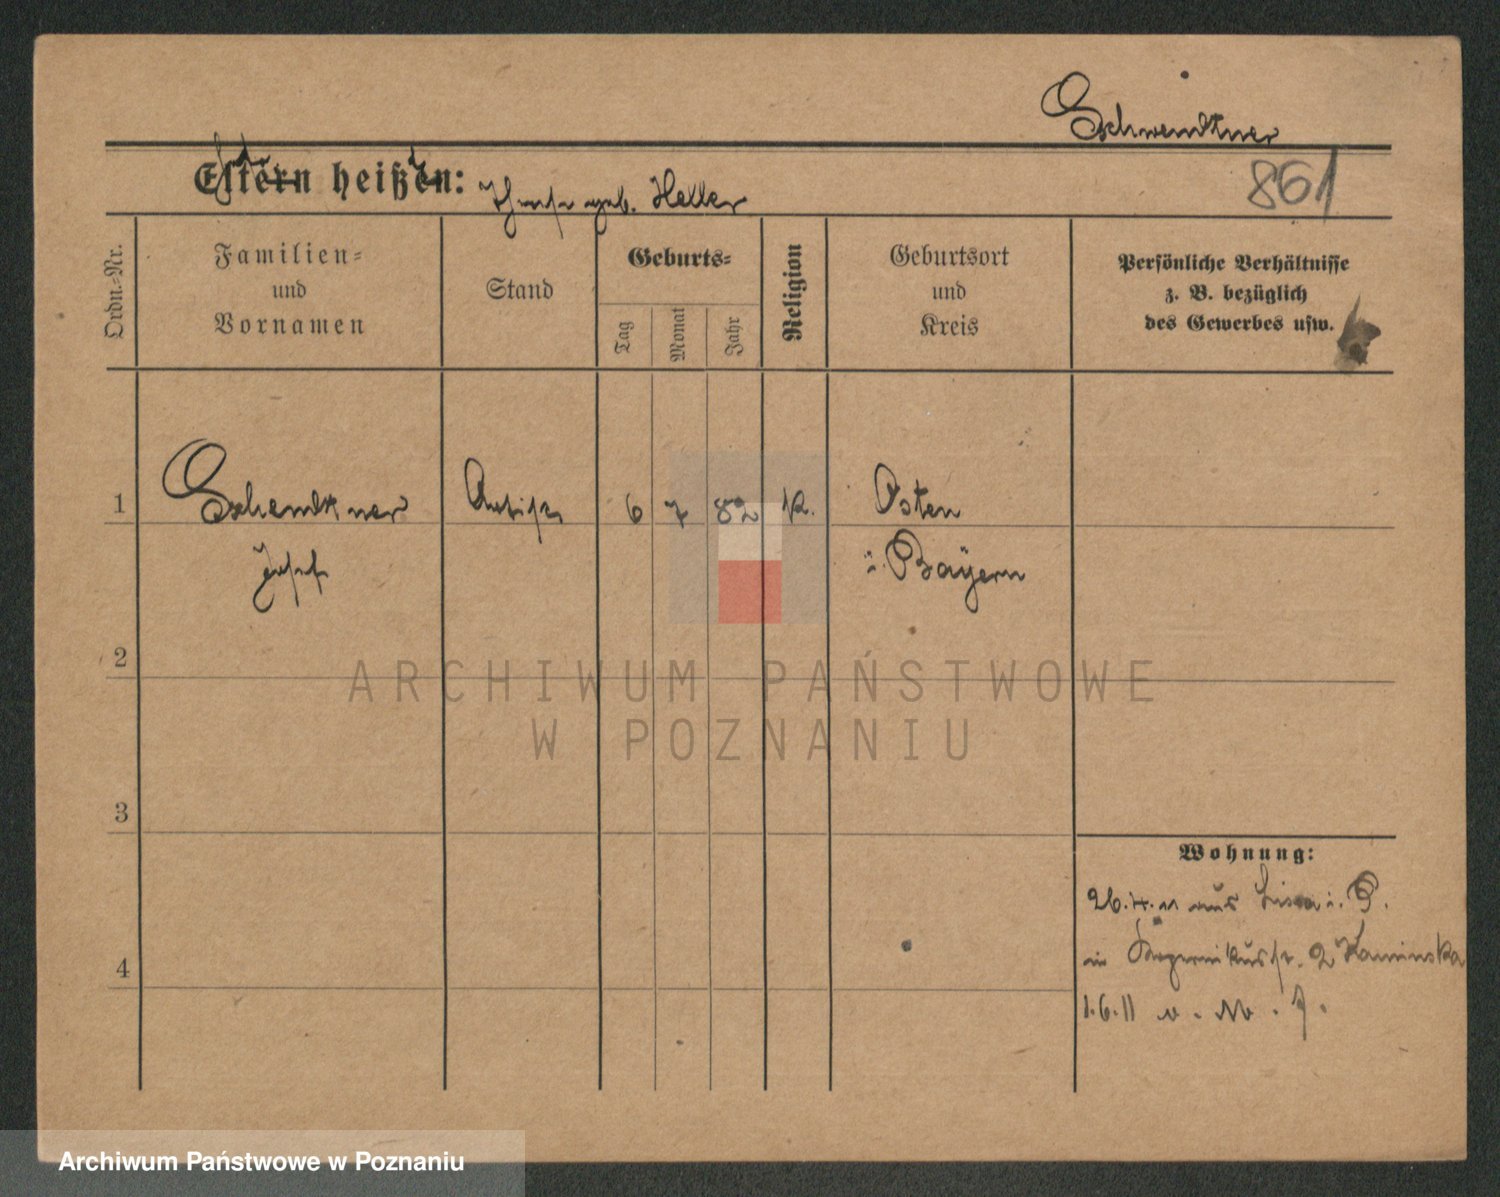 Schwendtner
Eltern heißen: geb. Heller
861
Ordn.-Nr.
Familien-
und
Vornamen
Stand
Geburts-
Tag
Monat
Jahr
Religion
Geburtsort
und
Kreis
Persönliche Verhältnisse
z. B. bezüglich
des Gewerbes usw.
1 Schendtner Artist 6 7 82 K. Osten
Josef i. Bayern
2
ARCHIWUM PAŃSTWOWE
W POZNANIU
3
Wohnung:
26.4.11 aus Lissa i. P.
in 2 Kaminska
4
1.6.11 v.
Archiwum Państwowe w Poznaniu